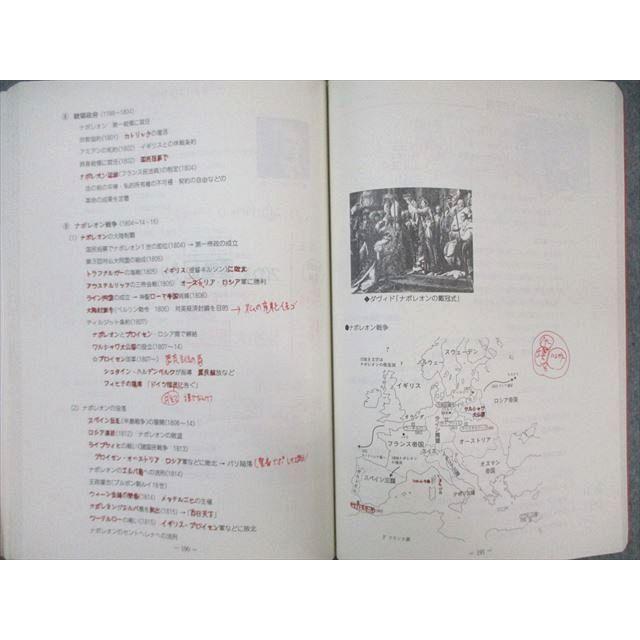 ⑧ 統領政府 (1799〜1804)
ナポレオン 第一統領に就任
宗教協約(1801) カトリックの復活
アミアンの和約(1802) イギリスとの休戦条約
終身統領に就任(1802) 国民投票で
ナポレオン法典(フランス民法典)の制定(1804)
法の前の平等・私的所有権の不可侵・契約の自由などの
革命の成果を定着
⑨ ナポレオン戦争 (1804〜14・15)
(1) ナポレオンの大陸制覇
国民投票でナポレオン1世の即位(1804) → 第一帝政の成立
第3回対仏大同盟の結成(1805)
トラファルガーの海戦(1805) イギリス(提督ネルソン)に敗北
アウステルリッツの三帝会戦(1805) オーストリア・ロシア軍に勝利
ライン同盟の成立 → 神聖ローマ帝国消滅(1806)
大陸封鎖令(ベルリン勅令 1806) 対英経済封鎖を目的
ティルジット条約(1807)
ナポレオンとプロイセン・ロシア間で締結
ワルシャワ大公国の設立(1807〜14)
☆プロイセン改革(1807〜)
シュタイン・ハルデンベルクが指導 農民解放など
フィヒテの講演 「ドイツ国民に告ぐ」
(2) ナポレオンの没落
スペイン反乱(半島戦争)の展開(1808〜14)
ロシア遠征(1812) ナポレオンの敗退
ライプツィヒの戦い(諸国民戦争 1813)
プロイセン・オーストリア・ロシア軍などに敗北 → パリ陥落
ナポレオンのエルバ島への流刑(1814)
王政復古(ブルボン朝ルイ18世)
ウィーン会議の開催(1814) メッテルニヒの主催
ナポレオンがエルバ島を脱出(1815) → 「百日天下」
ワーテルローの戦い(1815) イギリス・プロイセン軍などに敗北
ナポレオンのセントヘレナへの流刑
― 190 ―
◆ダヴィド「ナポレオンの戴冠式」
◆ナポレオン戦争
スウェーデン
ノルウェー
イギリス
ロシア帝国
ワルシャワ
大公国
ライン同盟
フランス帝国
オーストリア
スイス
オスマン
帝国
スペイン王国
ナポリ王国
― 191 ―